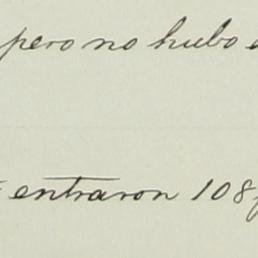 pero no hubo
entraron 108